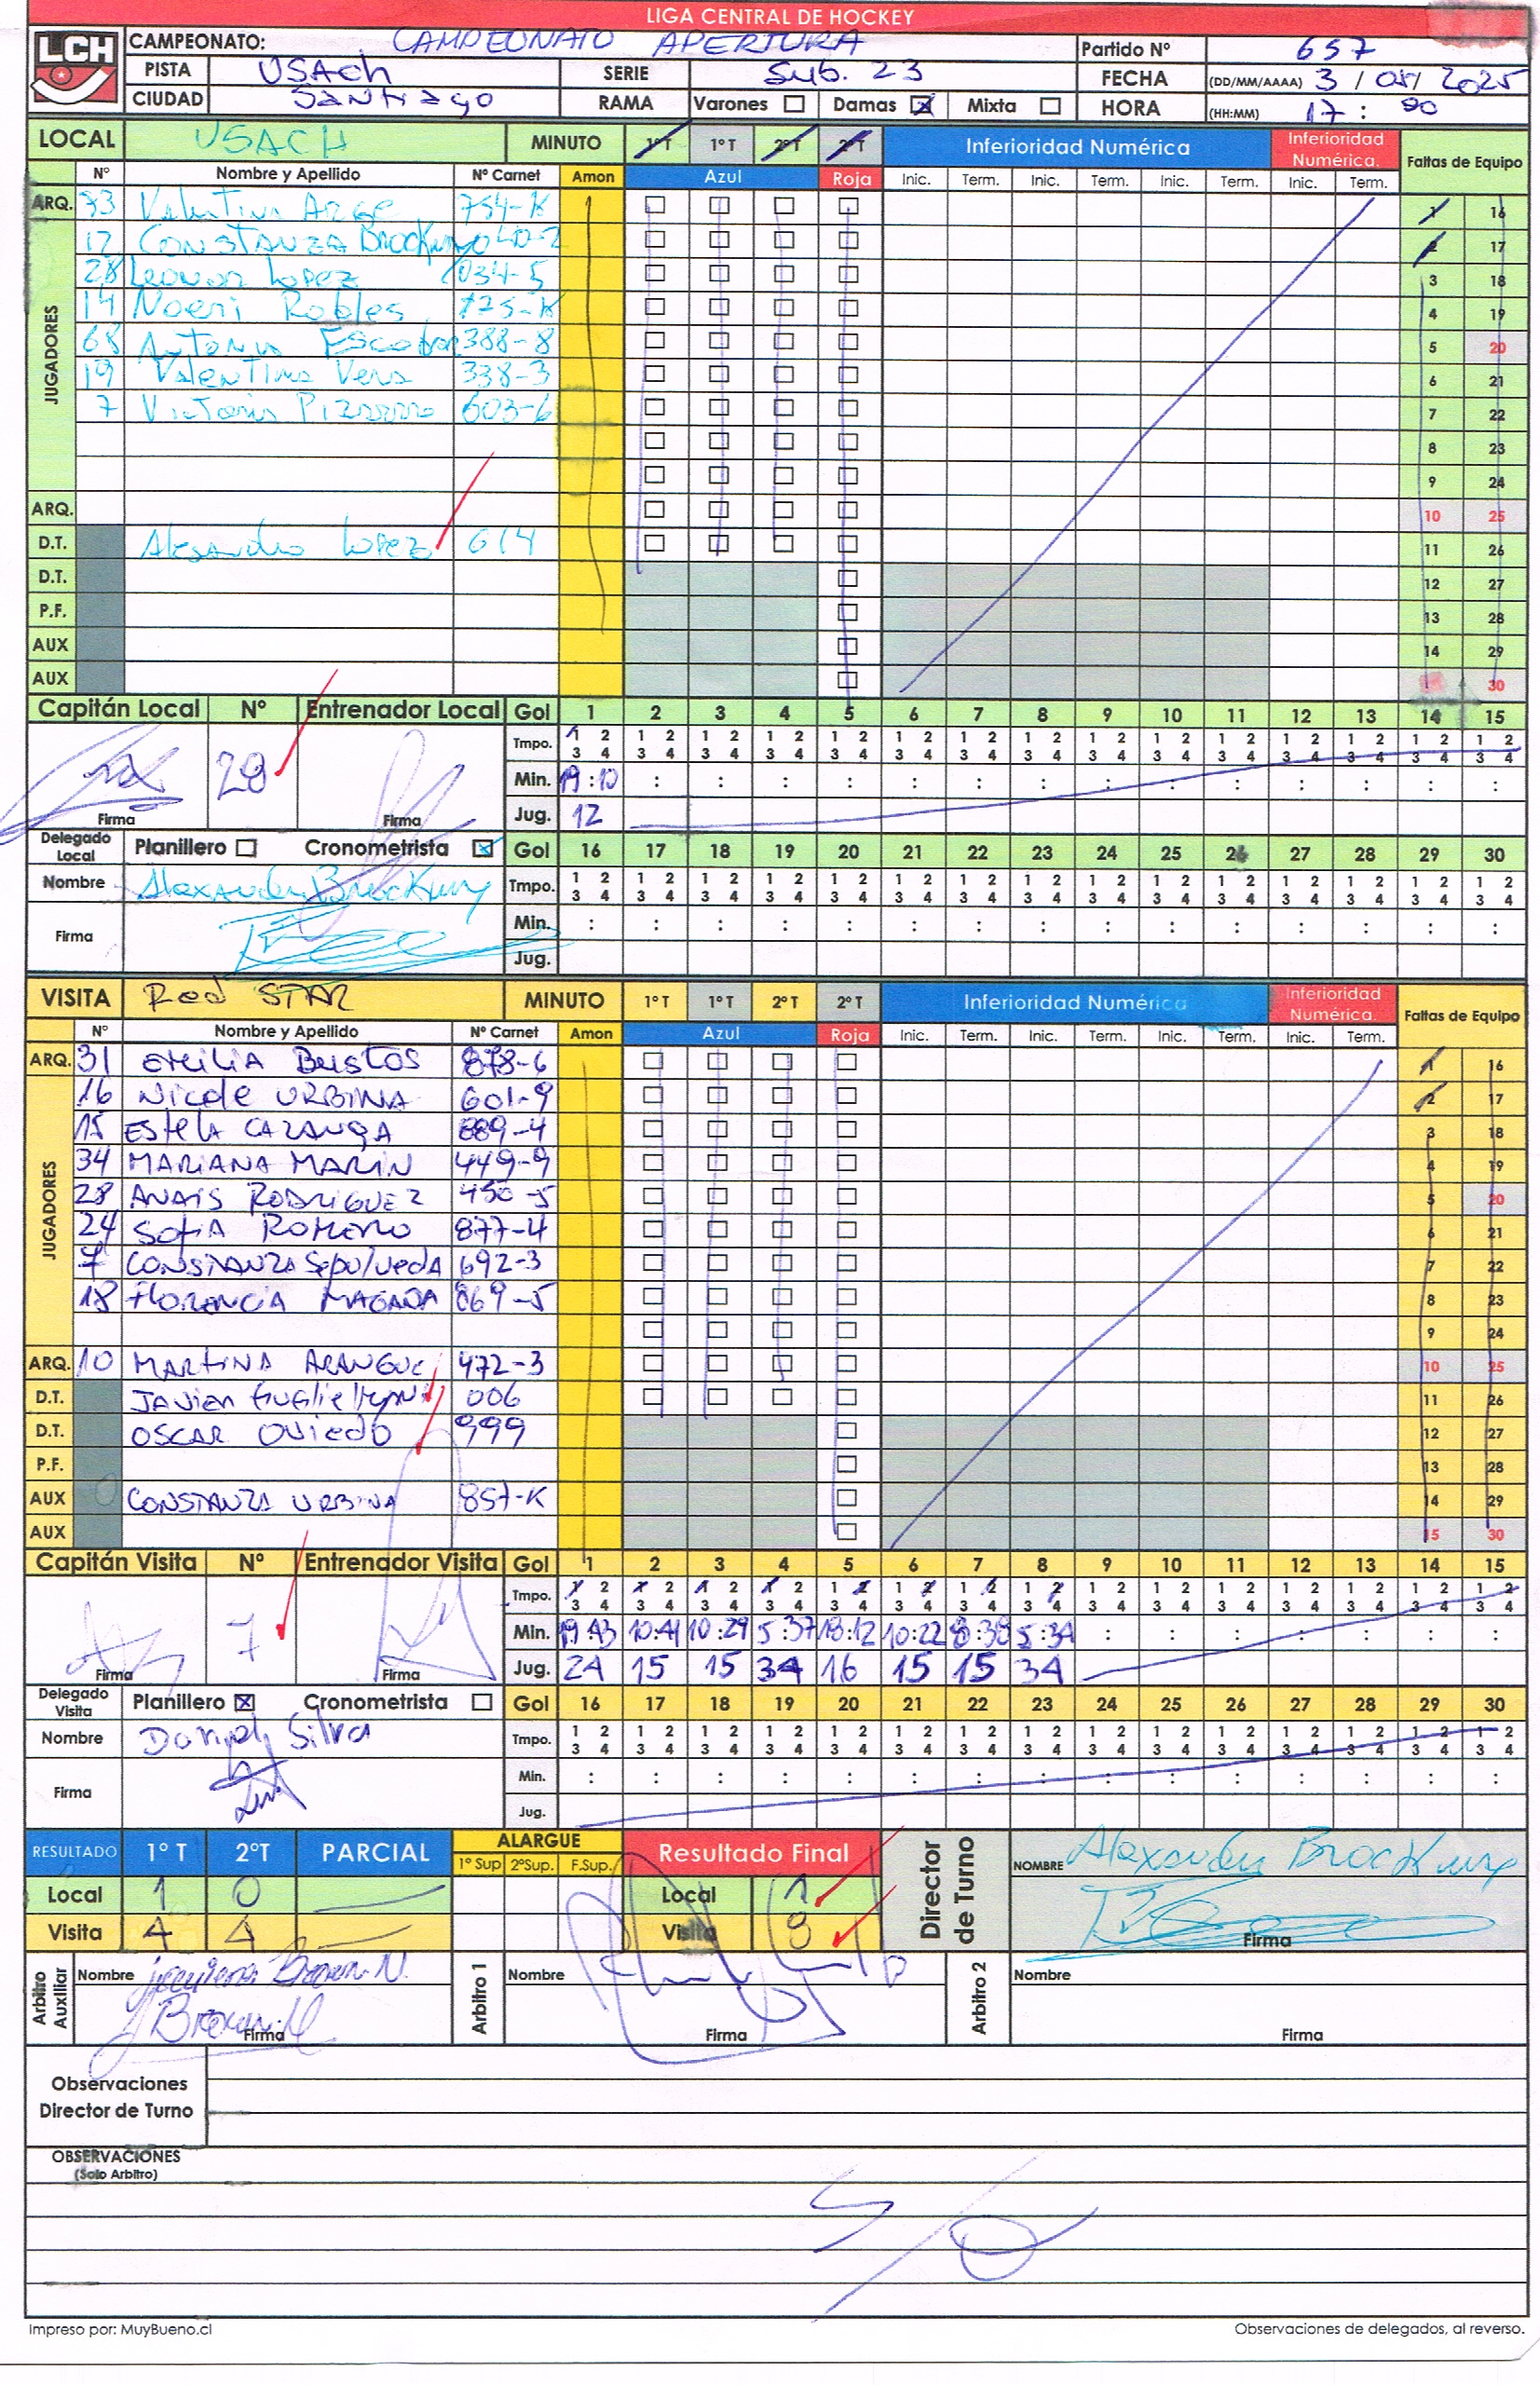 LIGA CENTRAL DE HOCKEY
LCH
CAMPEONATO: CAMPEONATO APERTURA Partido Nº 657
PISTA USACh SERIE Sub. 23 FECHA (DD/MM/AAAA) 3 / 05 / 2025
CIUDAD Santiago RAMA Varones Damas X Mixta HORA (HH:MM) 17 : 00
LOCAL USACH MINUTO 1º T 1º T 2º T 2º T Inferioridad Numérica Inferioridad Numérica. Faltas de Equipo
Nº Nombre y Apellido Nº Carnet Amon Azul Roja Inic. Term. Inic. Term. Inic. Term. Inic. Term.
ARQ. 33 Valentina Arce 754-K 1 16
JUGADORES
12 Constanza Brockway 040-2 2 17
28 Leonor Lopez 034-5 3 18
14 Noemi Robles 175-K 4 19
68 Antonia Escobar 388-8 5 20
19 Valentina Vera 338-3 6 21
7 Victoria Pizarro 603-6 7 22
8 23
9 24
ARQ. 10 25
D.T. Alesandro Lopez 614 11 26
D.T. 12 27
P.F. 13 28
AUX 14 29
AUX 30
Capitán Local Nº Entrenador Local Gol 1 2 3 4 5 6 7 8 9 10 11 12 13 14 15
Tmpo. 1 2 1 2 1 2 1 2 1 2 1 2 1 2 1 2 1 2 1 2 1 2 1 2 1 2 1 2 1 2
3 4 3 4 3 4 3 4 3 4 3 4 3 4 3 4 3 4 3 4 3 4 3 4 3 4 3 4 3 4
28 Min. 19:10 : : : : : : : : : : : : : :
Firma Firma Jug. 12
Delegado Local Planillero Cronometrista X Gol 16 17 18 19 20 21 22 23 24 25 26 27 28 29 30
Nombre Alexander Brockway Tmpo. 1 2 1 2 1 2 1 2 1 2 1 2 1 2 1 2 1 2 1 2 1 2 1 2 1 2 1 2 1 2
3 4 3 4 3 4 3 4 3 4 3 4 3 4 3 4 3 4 3 4 3 4 3 4 3 4 3 4 3 4
Firma Min. : : : : : : : : : : : : : : :
Jug.
VISITA Red STAR MINUTO 1º T 1º T 2º T 2º T Inferioridad Numérica Inferioridad Numérica. Faltas de Equipo
Nº Nombre y Apellido Nº Carnet Amon Azul Roja Inic. Term. Inic. Term. Inic. Term. Inic. Term.
ARQ. 31 Emilia Bustos 878-6 1 16
JUGADORES
16 Nicole URBINA 601-9 2 17
15 Estela CAZANGA 889-4 3 18
34 MARIANA MARIN 449-9 4 19
28 ANAIS RODRIGUEZ 450-5 5 20
24 Sofia Romero 877-4 6 21
7 CONSTANZA Sepulveda 692-3 7 22
18 Florencia MAGAÑA 869-5 8 23
9 24
ARQ. 10 MARTINA ARANGUE 472-3 10 25
D.T. Javier Guglielmini 006 11 26
D.T. OSCAR Oviedo 999 12 27
P.F. 13 28
AUX CONSTANZA URBINA 857-K 14 29
AUX 15 30
Capitán Visita Nº Entrenador Visita Gol 1 2 3 4 5 6 7 8 9 10 11 12 13 14 15
Tmpo. 1 2 1 2 1 2 1 2 1 2 1 2 1 2 1 2 1 2 1 2 1 2 1 2 1 2 1 2 1 2
3 4 3 4 3 4 3 4 3 4 3 4 3 4 3 4 3 4 3 4 3 4 3 4 3 4 3 4 3 4
7 Min. 19:43 10:41 10:29 5:37 18:12 10:22 8:38 5:34 : : : : : : :
Firma Firma Jug. 24 15 15 34 16 15 15 34
Delegado Visita Planillero X Cronometrista Gol 16 17 18 19 20 21 22 23 24 25 26 27 28 29 30
Nombre Daniel Silva Tmpo. 1 2 1 2 1 2 1 2 1 2 1 2 1 2 1 2 1 2 1 2 1 2 1 2 1 2 1 2 1 2
3 4 3 4 3 4 3 4 3 4 3 4 3 4 3 4 3 4 3 4 3 4 3 4 3 4 3 4 3 4
Firma Min. : : : : : : : : : : : : : : :
Jug.
RESULTADO 1º T 2ºT PARCIAL ALARGUE 1º Sup 2ºSup. F.Sup. Resultado Final Director de Turno NOMBRE Alexander Brockway
Local 1 0 — Local 1
Visita 4 4 — Visita 8 Firma
Arbitro Auxiliar Nombre Brown N. Arbitro 1 Nombre Arbitro 2 Nombre
Brown N Firma Firma Firma
Observaciones
Director de Turno
OBSERVACIONES
(Solo Arbitro)
S/O
Impreso por: MuyBueno.cl Observaciones de delegados, al reverso.